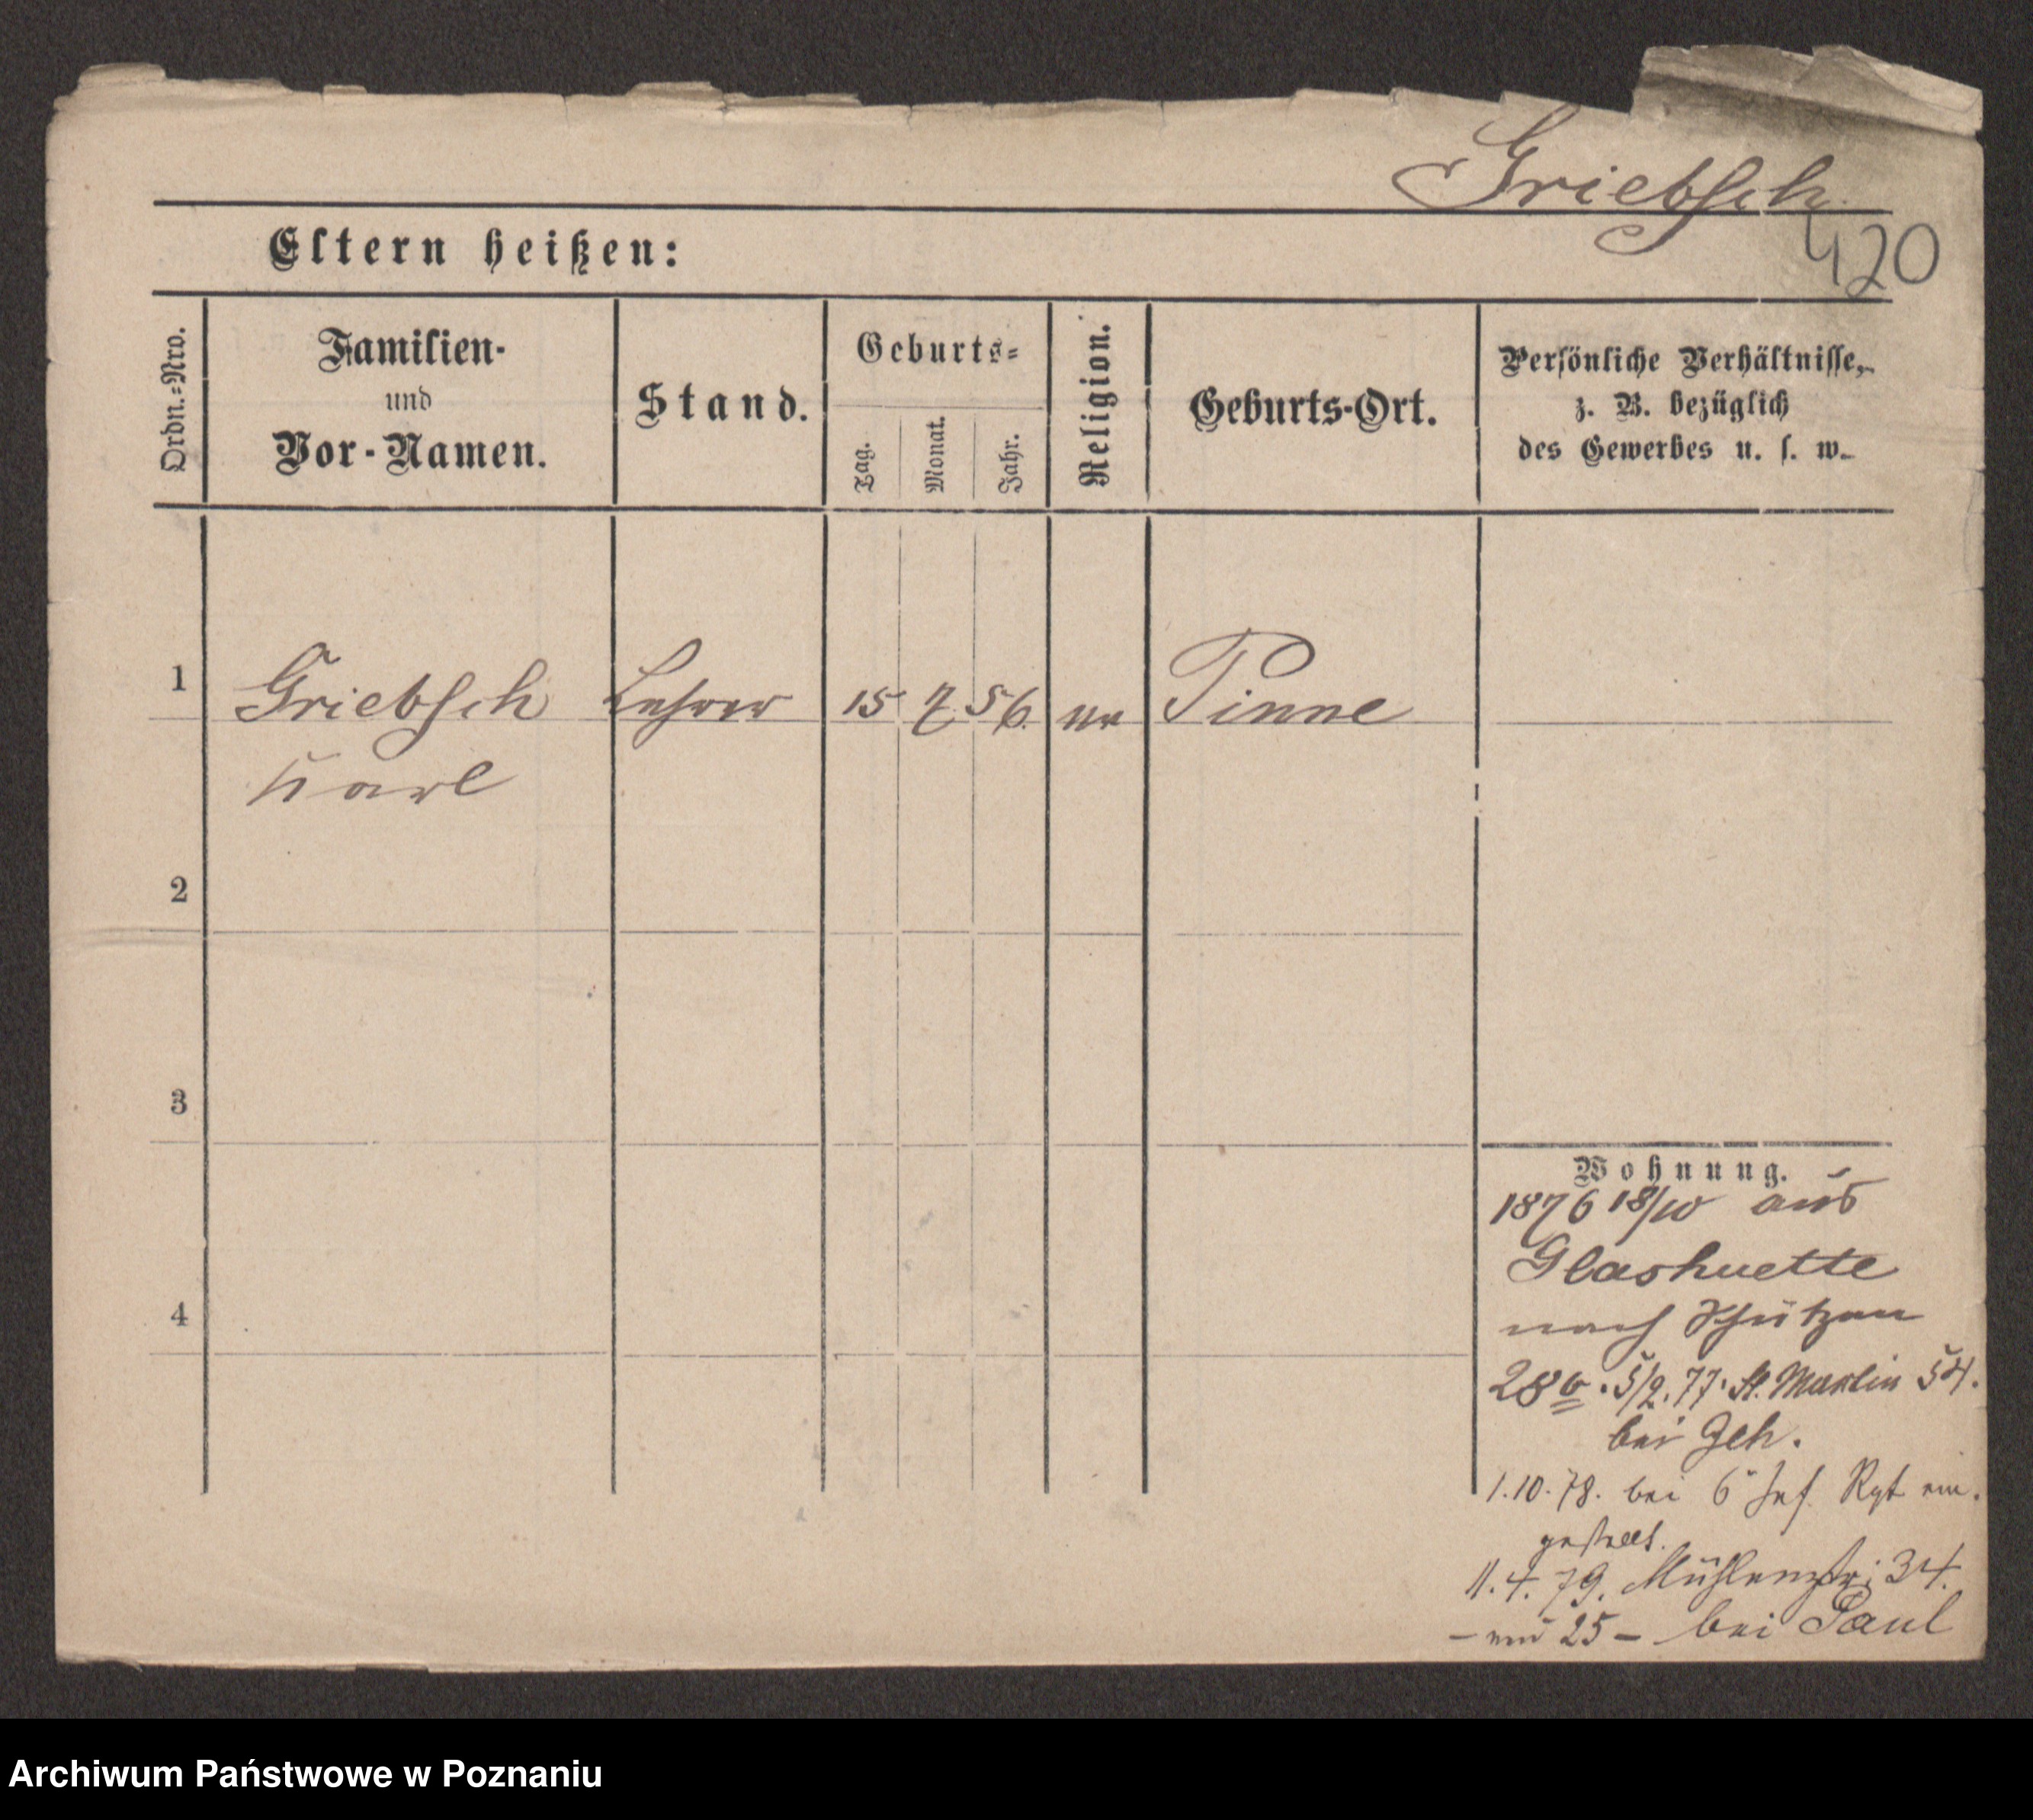 Griebsch
420
Eltern heißen:
Ordn.-Nro.
Familien-
und
Vor-Namen.
Stand.
Geburts-
Tag.
Monat.
Jahr.
Religion.
Geburts-Ort.
Persönliche Verhältnisse,
z. B. bezüglich
des Gewerbes u. s. w.
1 Griebsch Lehrer 15 7 56. ev Pinne
Karl
2
3
4
Wohnung.
1876 18/10 aus
Glashuette
nach Schützen
28b. 5/2. 77. St. Martin 54.
bei Geh.
1.10.78. bei 6 Inf. Rgt ein.
gestellt.
11.4.79. Mühlenstr: 34.
25 - bei Paul
Archiwum Państwowe w Poznaniu